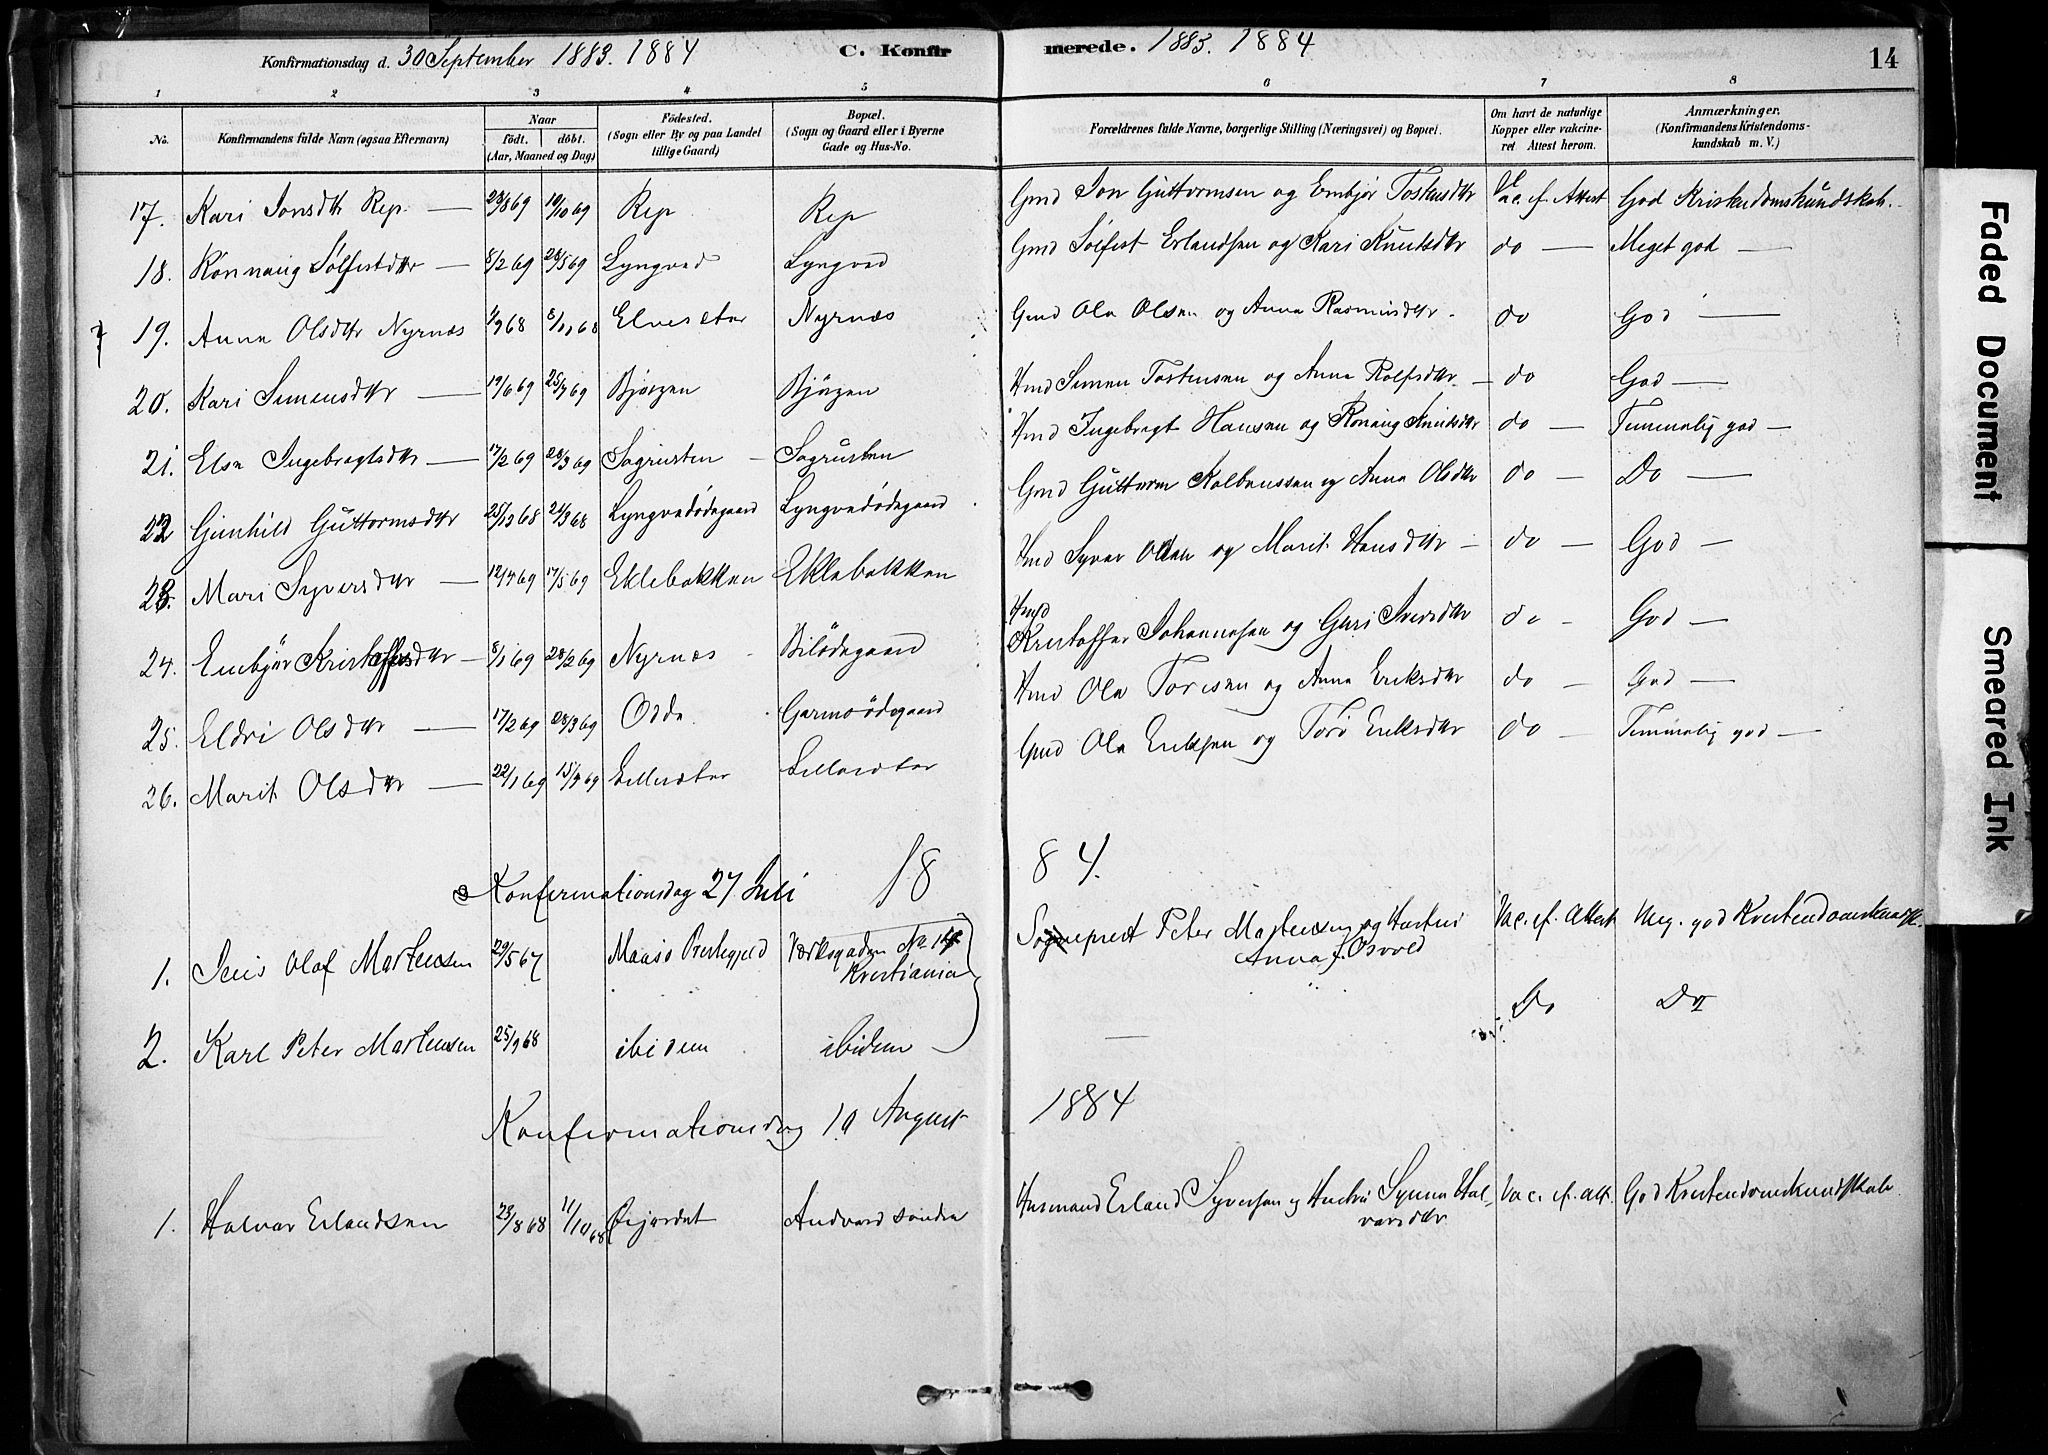 Konfirmationsdag d. 30 September 1883. 1884 C. Konfirmerede. 1883. 1884 14
1 2 3 4 5 6 7 8
No. Konfirmandens fulde Navn (ogsaa Efternavn) Naar født. døbt. (Aar, Maaned og Dag) Fødested. (Sogn eller By og paa Landet tillige Gaard) Bopæl. (Sogn og Gaard eller i Byerne Gade og Hus-No. Forældrenes fulde Navne, borgerlige Stilling (Næringsvei) og Bopæl. Om havt de naturlige Kopper eller vakcineret Attest herom. Anmærkninger. (Konfirmandens Kristendomskundskab m. V.)
17. Kari Jonsdtr Rep — 29/8 69 10/10 69 Rep Rep Gmd Jon Guttormsen og Embjør Tostensdtr Vac. ef. Attest God Kristendomskundskab.
18. Rønnaug Sølfestdtr — 8/2 69 28/5 69 Lyngved Lyngved Gmd Sølfest Erlandsen og Kari Knutsdtr do — Meget god —
19. Anne Olsdtr Nyrnæs 1/9 68 8/11 68 Elvesæter Nyrnæs Gmd Ola Olsen og Anna Rasmusdtr do God —
20. Kari Simensdtr — 19/6 69 25/7 69 Bjørgen Bjørgen Hmd Simen Tostensen og Anna Rolfsdtr — do God —
21. Else Ingebregtsdtr — 17/2 69 29/3 69 Sagrusten Sagrusten Hmd Ingebregt Hansen og Rønnaug Knutsdtr do — Temmelig god —
22 Gunhild Guttormsdtr 25/12 68 21/3 68 Lyngvedødegaard Lyngvedødegaard Gmd Guttorm Kolbenssen og Anne Olsdtr do — Do —
23. Mari Syversdtr — 12/4 69 17/5 69 Eklebakken Eklebakken Hmd Syver Olsen og Marit Hansdtr — do — God —
24. Embjør Kristoffersdtr — 8/1 69 28/2 69 Nyrnæs Bilødegaard Hmd Kristoffer Johannesen og Guri Iversdtr do — God —
25. Eldri Olsdtr — 17/2 69 28/3 69 Odde Garmoødegaard Hmd Ola Toresen og Anne Eriksdtr do — God —
26. Marit Olsdtr — 22/1 69 15/3 69 Lillesæter Lillesæter Gmd Ola Eriksen og Torø Eriksdtr do — Temmelig god —
Konfirmationsdag 27 Juli 18 84.
1. Jens Olaf Martensen 29/5 67 Maasø Præstegjeld Værksgaden No 14 Kristiania Sognepræst Peter Martensen og Hustru Anna f. Osvold Vac. ef. Attest Meg. god Kristendomskundsk.
2. Karl Peter Martensen 25/9 68 ibidem ibidem — Do Do
Konfirmationsdag 10 August 1884
1. Halvor Erlandsen 23/8 68 11/10 68 Øijordet Andvord søndre Husmand Erland Syversen og Hustru Synne Halvorsdtr Vac. ef. att. God Kristendomskundskab
Faded Document
Smeared Ink